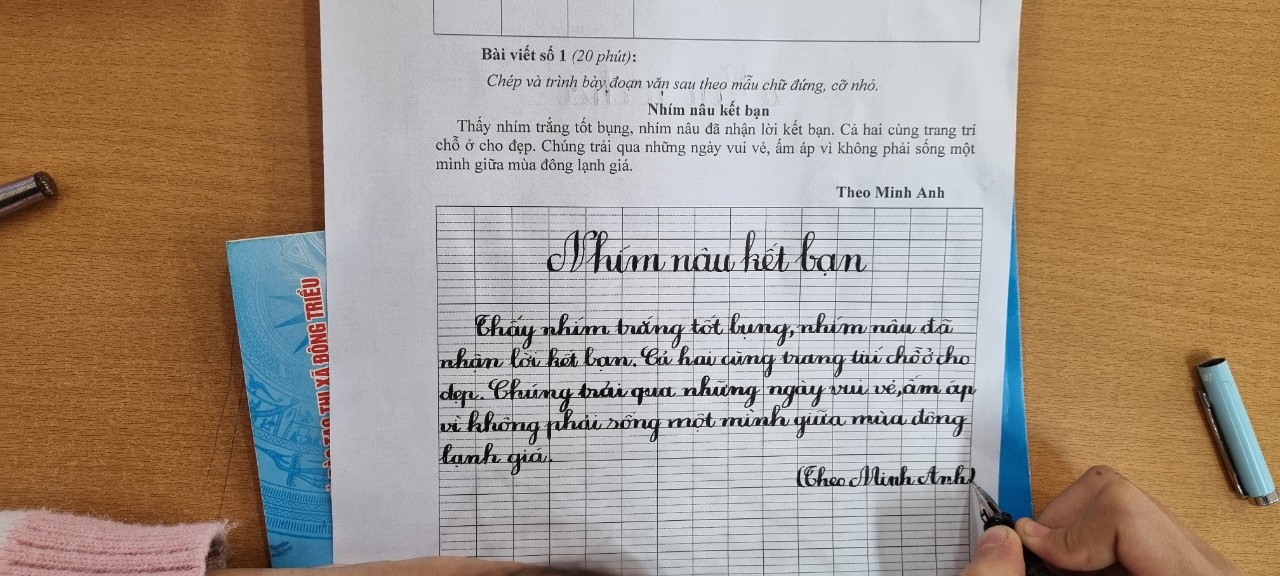 Bài viết số 1 (20 phút):
Chép và trình bày đoạn văn sau theo mẫu chữ đứng, cỡ nhỏ.
Nhím nâu kết bạn
Thấy nhím trắng tốt bụng, nhím nâu đã nhận lời kết bạn. Cả hai cùng trang trí
chỗ ở cho đẹp. Chúng trải qua những ngày vui vẻ, ấm áp vì không phải sống một
mình giữa mùa đông lạnh giá.
Theo Minh Anh
Nhím nâu kết bạn
Thấy nhím trắng tốt bụng, nhím nâu đã
nhận lời kết bạn. Cả hai cùng trang trí chỗ ở cho
đẹp. Chúng trải qua những ngày vui vẻ, ấm áp
vì không phải sống một mình giữa mùa đông
lạnh giá.
(Theo Minh Anh)
TẠO THỊ XÃ ĐÔNG TRIỀU